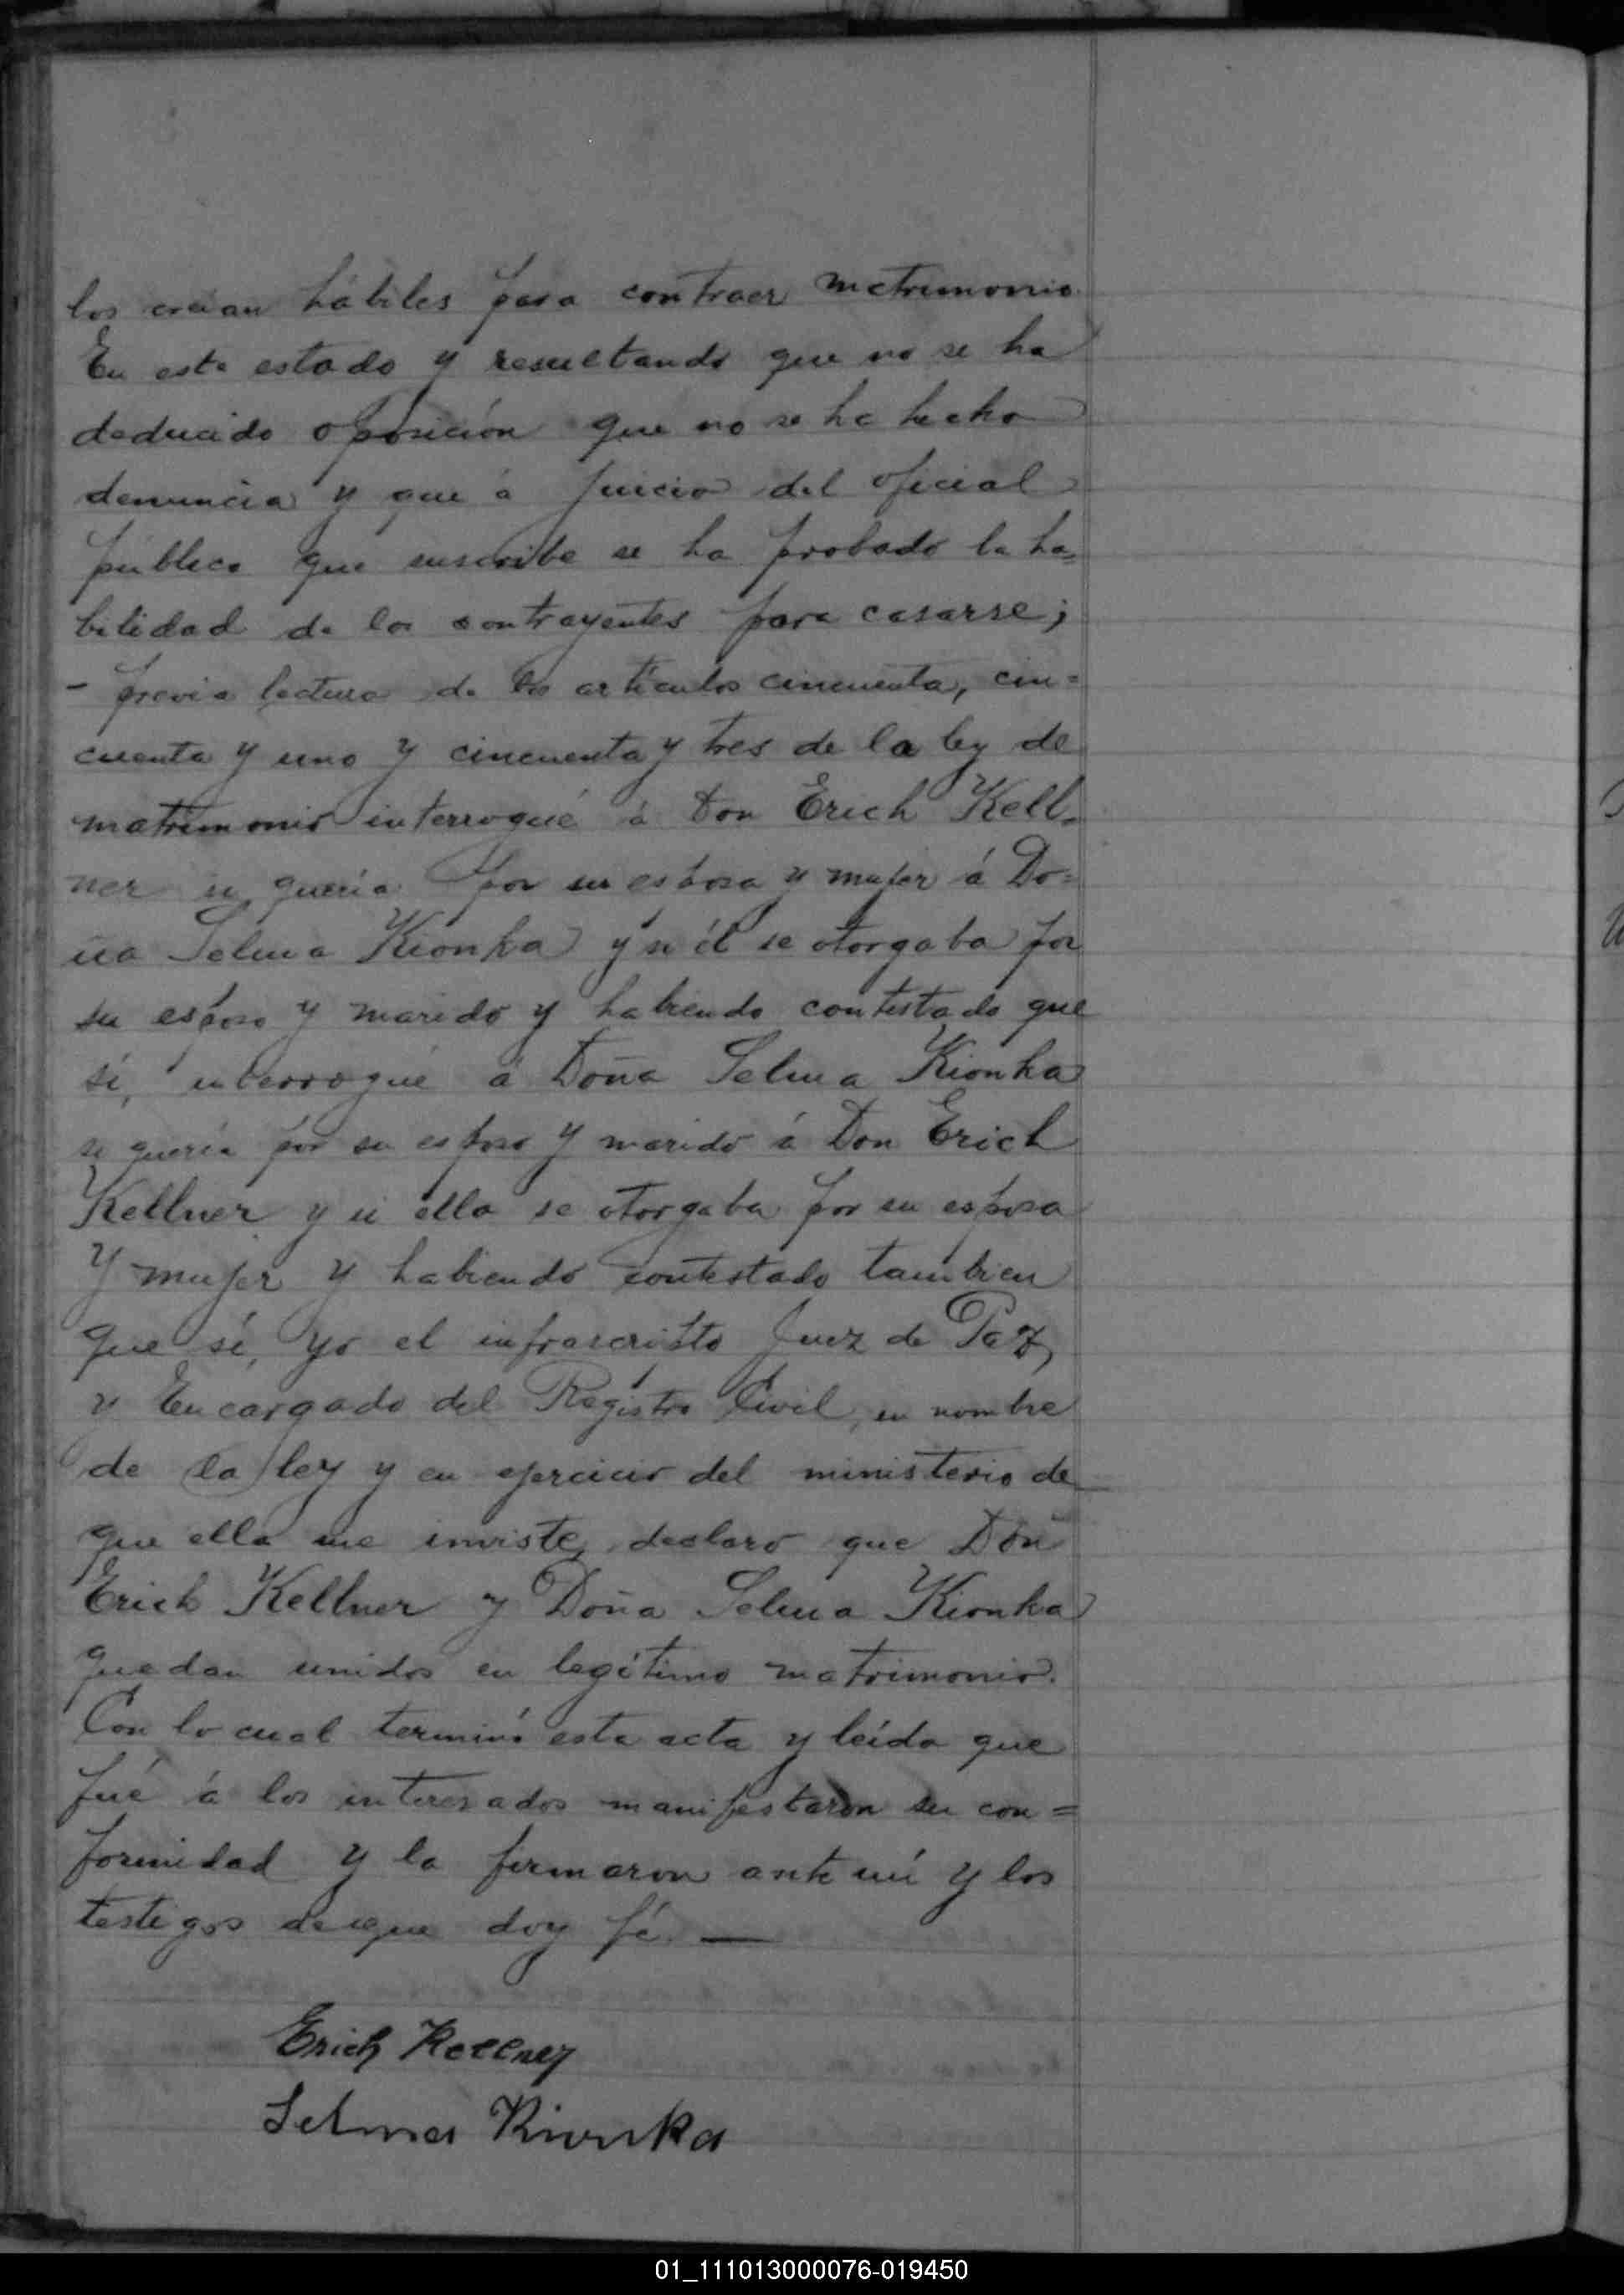 los creían hábiles para contraer matrimonio.
En este estado y resultando que no se ha
deducido oposición que no se ha hecho
denuncia y que á juicio del oficial
público que suscribe se ha probado la ha=
bilidad de los contrayentes para casarse;
- previa lectura de los artículos cincuenta, cin=
cuenta y uno y cincuenta y tres de la ley de
matrimonio interrogué á Don Erich Kell=
ner si quería por su esposa y mujer á Do=
ña Selma Kionka y si él se otorgaba por
su esposo y marido y habiendo contestado que
sí, interrogué á Doña Selma Kionka
si quería por su esposo y marido á Don Erich
Kellner y si ella se otorgaba por su esposa
y mujer y habiendo contestado tambien
que sí, yo el infrascristo Juez de Paz,
y Encargado del Registro Civil, en nombre
de la ley y en ejercicio del ministerio de
que ella me inviste, declaro que Don
Erich Kellner y Doña Selma Kionka
quedan unidos en legítimo matrimonio.
Con lo cual terminó esta acta y leída que
fué á los interesados manifestaron su con=
formidad y la firmaron ante mí y los
testigos de que doy fé. —
Erich Kellner
Selma Kionka
01_111013000076-019450